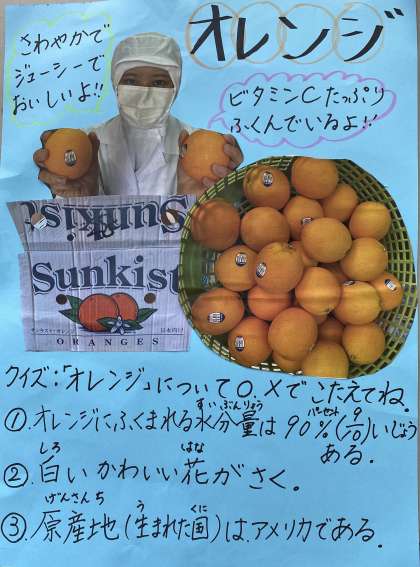 オレンジ
さわやかで
ジューシーで
おいしいよ!!
ビタミンCたっぷり
ふくんでいるよ!!
Sunkist
Sunkist
ORANGES
クイズ:「オレンジ」について○、×でこたえてね。
すいぶんりょう パーセント
①.オレンジにふくまれる水分量は90%(9/10)いじょう
ある.
しろ はな
②.白いかわいい花がさく。
げんさんち う くに
③.原産地(生まれた国)は、アメリカである.